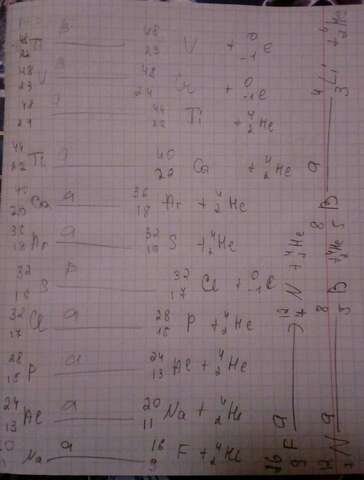 48 22 Ti β 48 23 V + 0 -1 e
48 23 V β 48 24 Cr + 0 -1 e
48 24 a 44 22 Ti + 4 2 He
44 22 Ti a 40 20 Ca + 4 2 He
40 20 Ca a 36 18 Ar + 4 2 He
36 18 Ar a 32 16 S + 4 2 He
32 16 S β 32 17 Cl + 0 -1 e
32 17 Cl a 28 15 P + 4 2 He
28 15 P a 24 13 Al + 4 2 He
24 13 Al a 20 11 Na + 4 2 He
Na a 16 9 F + 4 2 He
16 9 F a 12 7 N + 4 2 He
12 7 N a 8 5 B + 4 2 He
8 5 B a 4 3 Li + 4 2 He